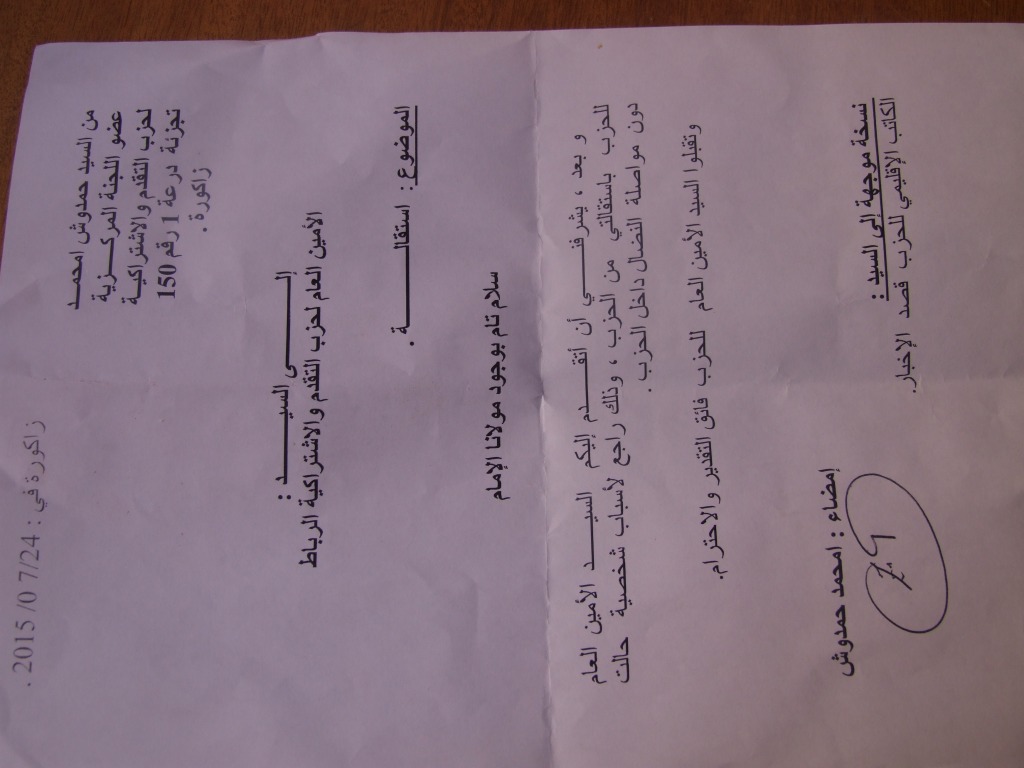 زاكورة في : 07/24/ 2015 .
من السيد حمدوش امحمـد
عضو اللجنة المركـــزية
لحزب التقدم والاشتراكيـة
تجزئة درعة 1 رقم 150
زاكورة .
إلـــــــــى السيـــــــد :
الأمين العام لحزب التقدم والاشتراكية الرباط
الموضوع : استقالـــــــــة .
سلام تام بوجود مولانا الإمام
و بعد ، يشرفنـــــي أن أتقـــــدم إليكم السيـــــد الأمين العام
للحزب باستقالتي من الحزب ، وذلك راجع لأسباب شخصية حالت
دون مواصلة النضال داخل الحزب .
وتقبلوا السيد الأمين العام للحزب فائق التقدير والاحترام.
إمضاء : امحمد حمدوش
نسخة موجهة إلى السيد :
الكاتب الإقليمي للحزب قصد الإخبار.